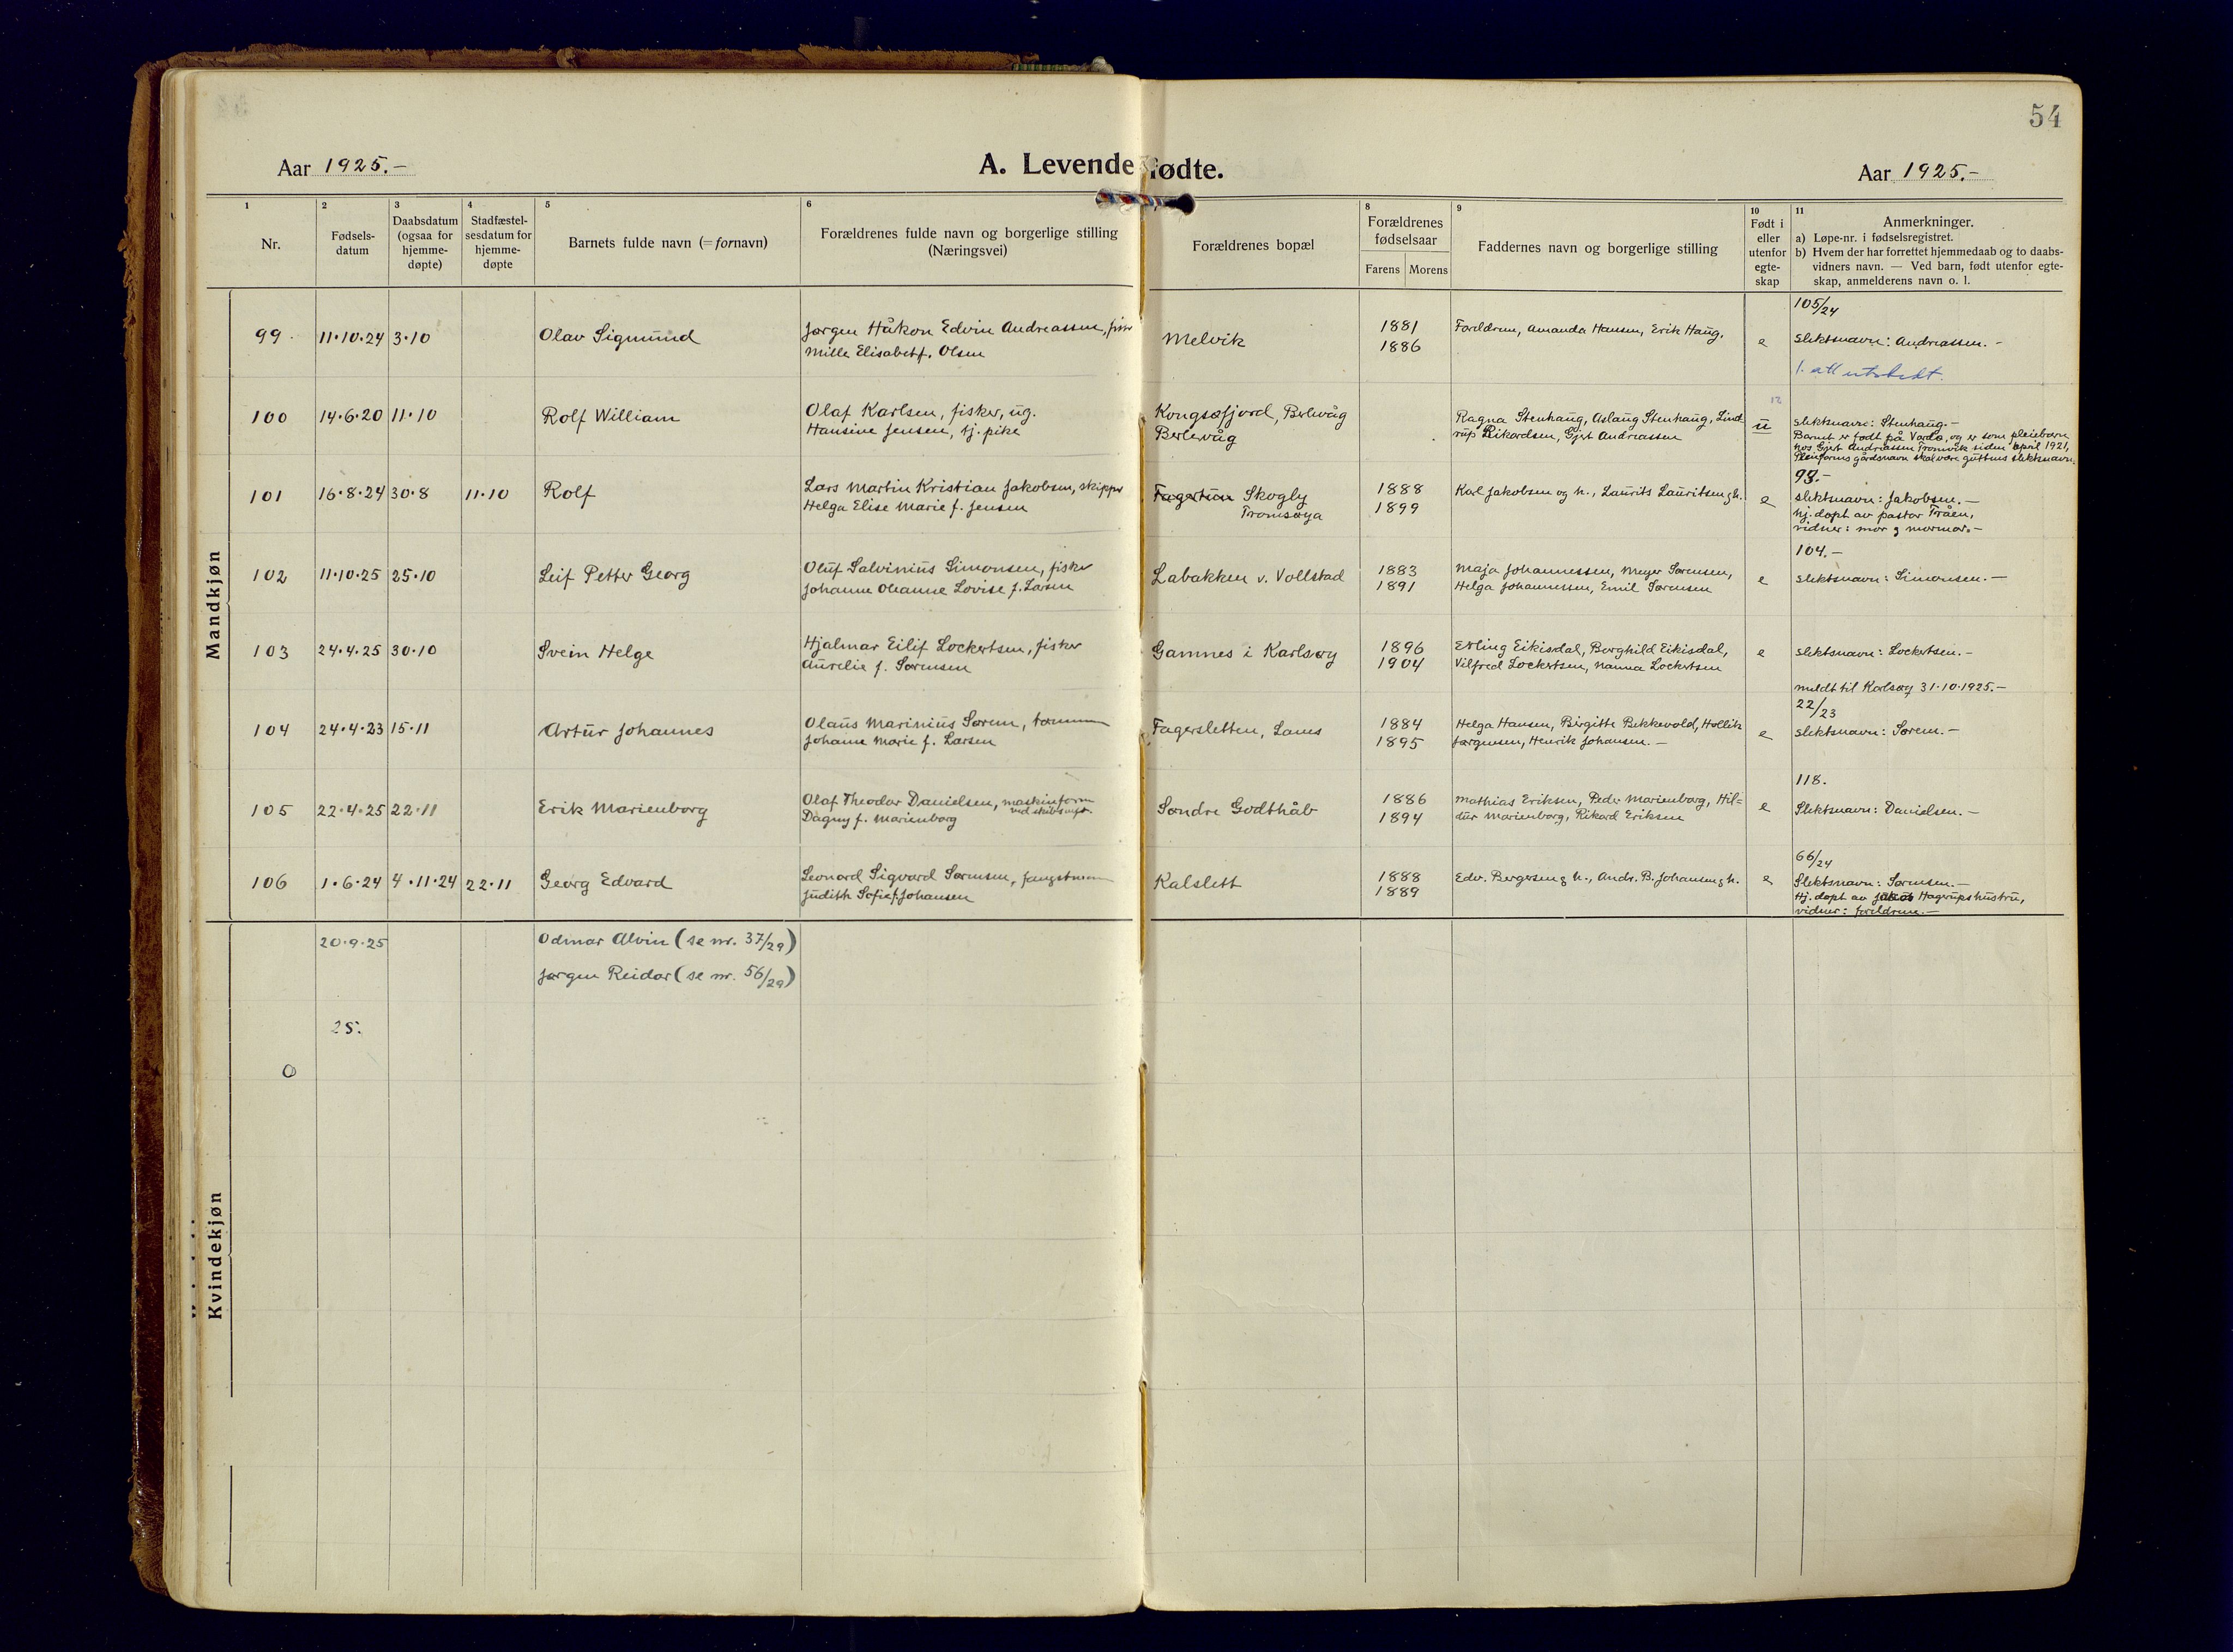 54
Aar 1925.-
A. Levendefødte.
Aar 1925.-
1 2 3 4 5 6 8 9 10 11
Nr.
Fødsels-
datum
Daabsdatum
(ogsaa for
hjemme-
døpte)
Stadfæstel-
sesdatum for
hjemme-
døpte
Barnets fulde navn (= fornavn)
Forældrenes fulde navn og borgerlige stilling
(Næringsvei)
Forældrenes bopæl
Forældrenes
fødselsaar
Farens Morens
Faddernes navn og borgerlige stilling
Født i
eller
utenfor
egte-
skap
Anmerkninger.
a) Løpe-nr. i fødselsregistret.
b) Hvem der har forrettet hjemmedaab og to daabs-
vidners navn. — Ved barn, født utenfor egte-
skap, anmelderens navn o. l.
Mandkjøn
99 11·10·24 3·10 Olav Sigmund
Jørgen Håkon Edvin Andreassen, fisker
Mille Elisabet f. Olsen
Melvik
1881
1886
Foreldrene, Amanda Hansen, Erik Haug.
e
105/24
slektsnavn: Andreassen. -
1. att utstedt.
100 14·6·20 11·10 Rolf William
Olaf Karlsen, fisker, ug.
Hansine Jensen, tj. pike
Kongsøfjord, Berlevåg
Berlevåg
Ragna Stenhaug, Aslaug Stenhaug, Lind
rup Rikardsen, Gjert Andreassen
u
slektsnavn: Stenhaug.-
Barnet er født på Vardø, og er som pleiebarn
hos Gjert Andreassen Tromvik siden april 1921,
Pleiefarens gårdsnavn skal være guttens slektsnavn.
101 16·8·24 30·8 11·10 Rolf
Lars Martin Kristian Jakobsen, skipper
Helga Elise Marie f. Jensen
Fagertun Skogly
Tromsøya
1888
1899
Karl Jakobsen og h., Laurits Lauritsen og h.
e
93.-
slektsnavn: Jakobsen.-
hj. døpt av pastor Tråen,
vidner: mor og mormor.-
102 11·10·25 25·10 Leif Petter Georg
Oluf Salvinius Simonsen, fisker
Johanne Oleanne Lovise f. Larsen
Labakken v. Vollstad
1883
1891
Maja Johannessen, Meyer Sørensen,
Helga Johannessen, Emil Sørensen
e
104.-
slektsnavn: Simonsen.-
103 24·4·25 30·10 Svein Helge
Hjalmar Eilif Lockertsen, fisker
Aurelie f. Sørensen
Gamnes i Karlsøy
1896
1904
Erling Eikisdal, Borghild Eikisdal,
Vilfred Lockertsen, Nanna Lockertsen
e
slektsnavn: Lockertsen.-
meldt til Karlsøy 31·10·1925.-
104 24·4·23 15·11 Artur Johannes
Olaus Marinius Sørem,
Johanne Marie f. Larsen
Fagersletten, Lanes
1884
1895
Helga Hansen, Birgitte Bekkevold, Hollik
Jørgensen, Henrik Johansen.-
e
22/23
slektsnavn: Sørem.-
105 22·4·25 22·11 Erik Marienborg
Olaf Theodor Danielsen, maskinform
Dagny f. Marienborg
ved
Søndre Godthåb
1886
1894
Mathias Eriksen, Peder Marienborg, Hil=
dur Marienborg, Rikard Eriksen
e
118.
Slektsnavn: Danielsen.-
106 1·6·24 4·11·24 22·11 Georg Edvard
Leonard Sigvard Sørensen, fangstmann
Judith Sofie f. Johansen
Kalslett
1888
1889
Edv. Bergersen og h., Andr. B. Johansen og h.
e
66/24
Slektsnavn: Sørensen.-
Hj. døpt av Jakob Hagerups hustru,
vidner: foreldrene.-
20·9·25 Odmar Alvin (se nr. 37/29)
Jørgen Reidar (se nr. 56/29)
25.
0
Kvindekjøn